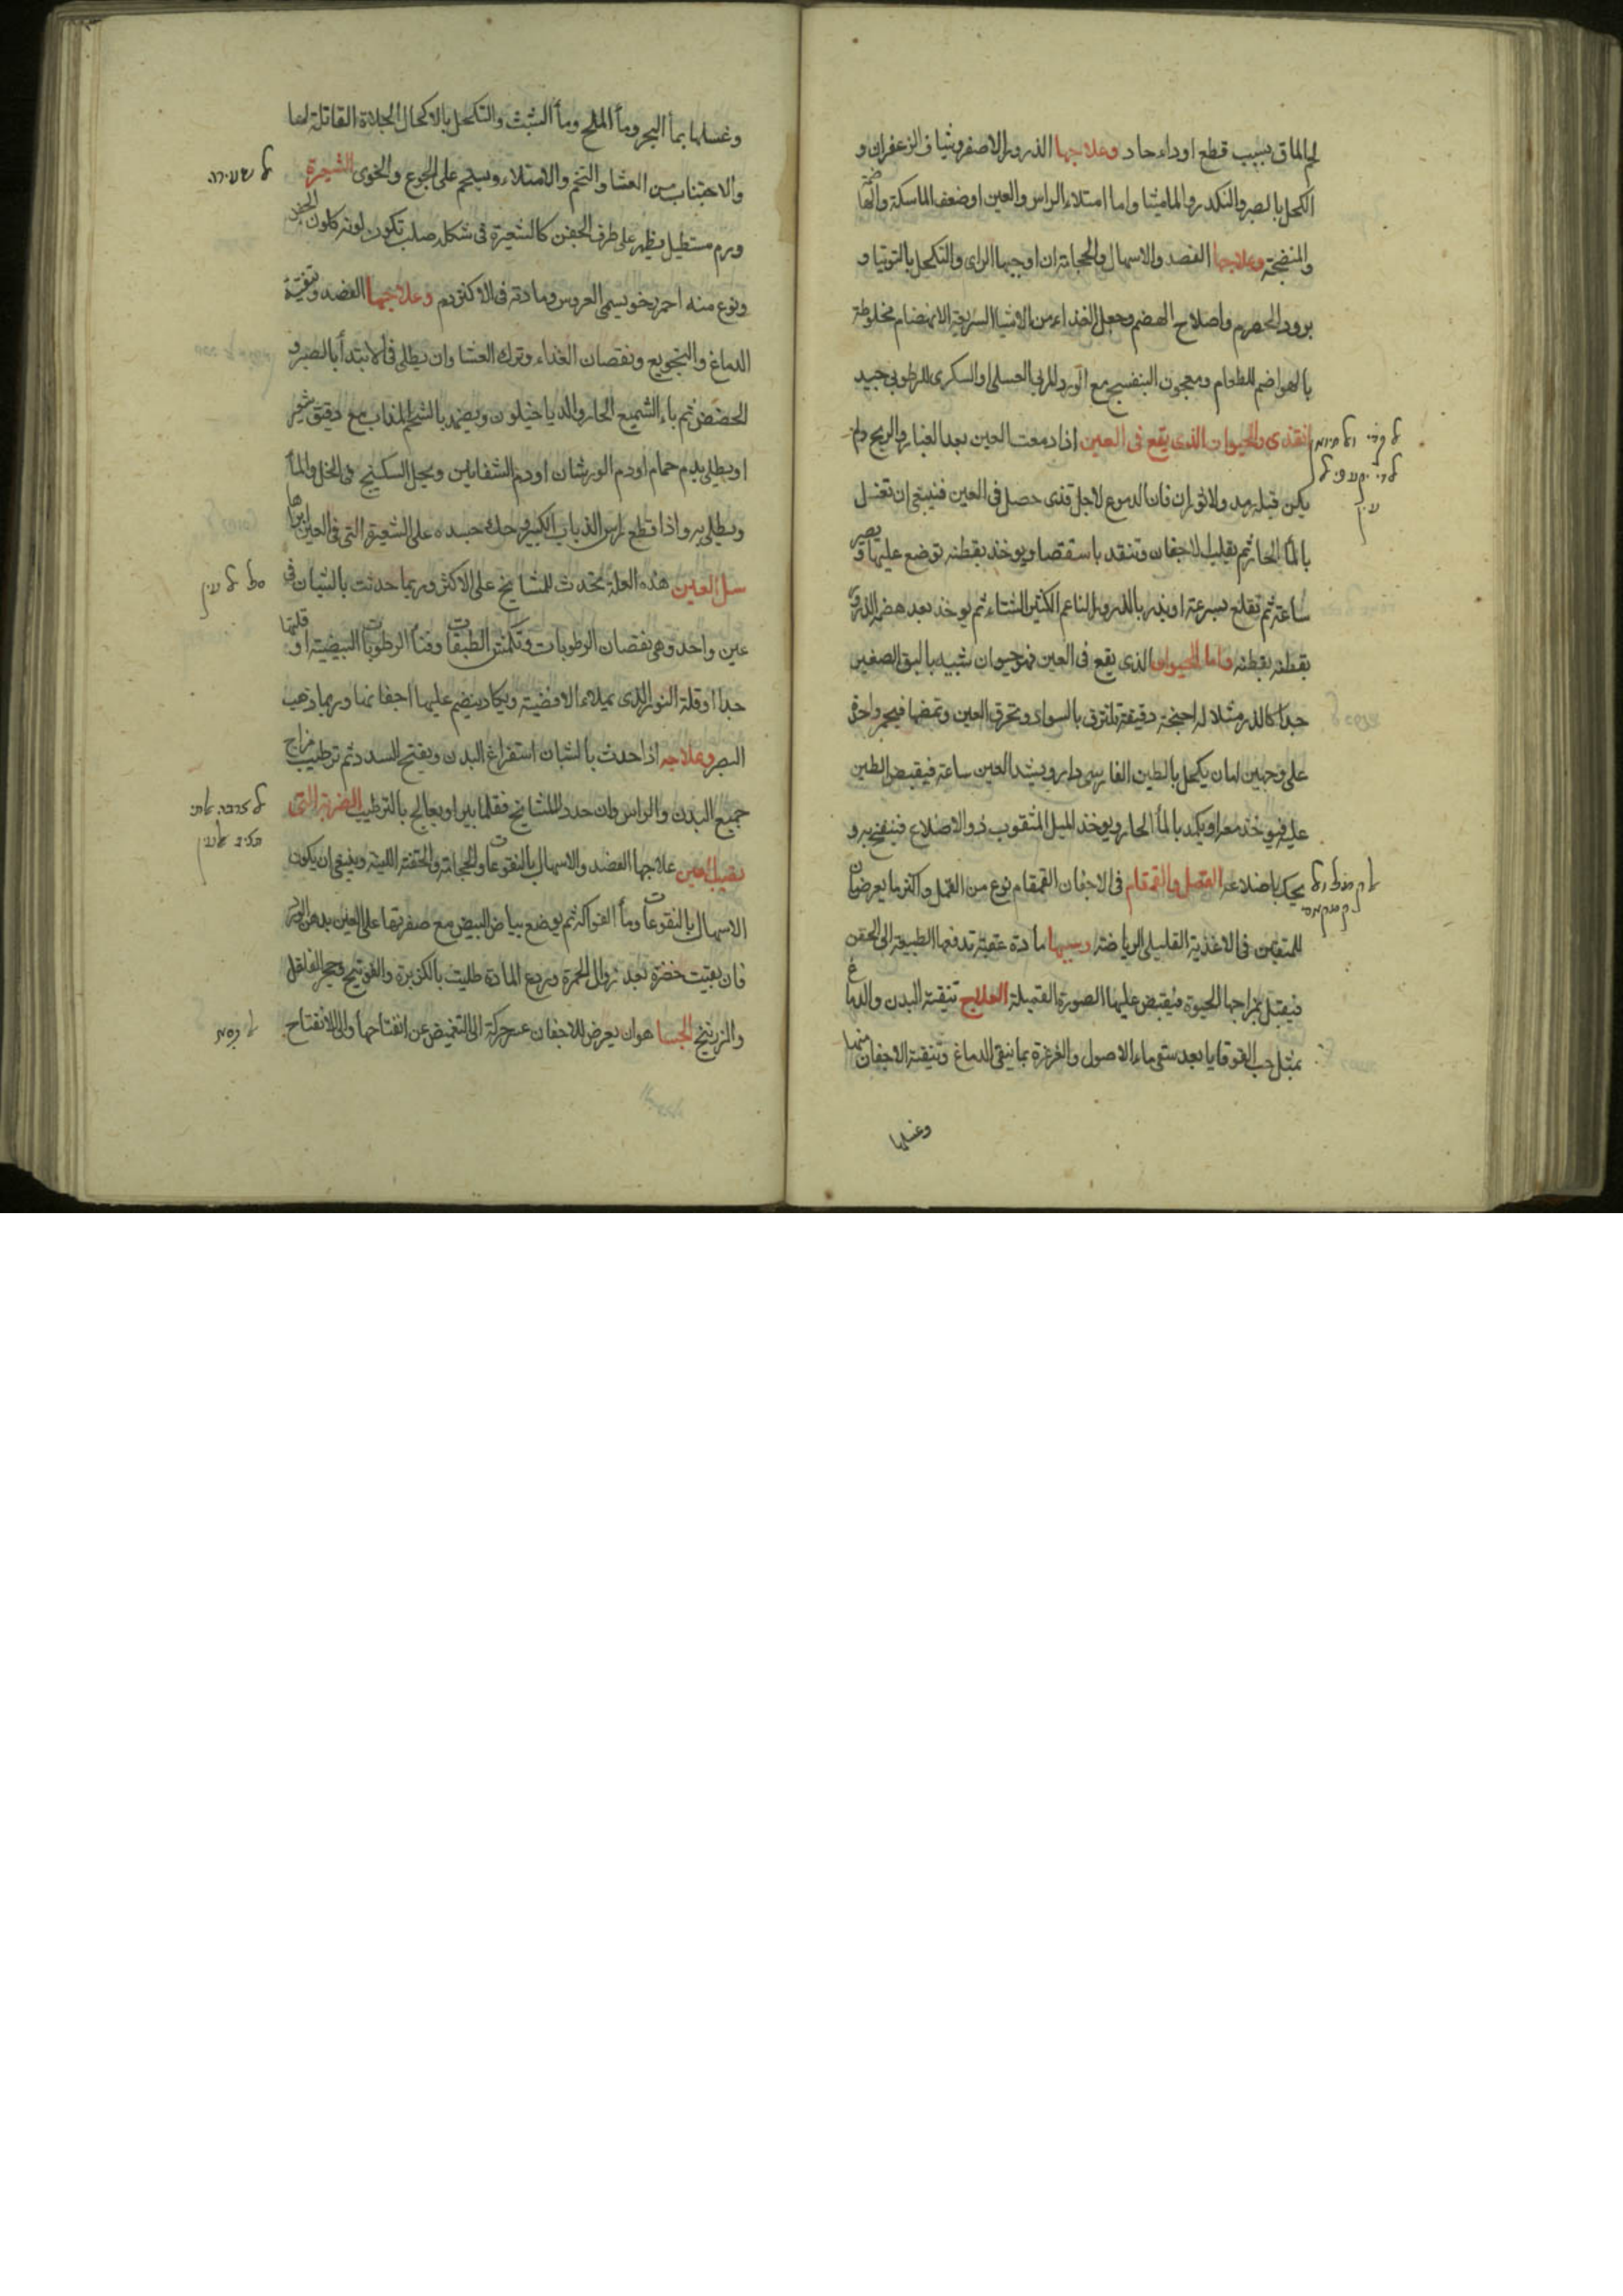 لحم الماق بسبب قطع او داء حاد وعلاجها الذرور الاصفر وشياف الزعفران و
الكحل بالصبر والكندر والماميثا واما امتلاء الراس والعين او ضعف الماسكة والهاضمة
والمنضجة وعلاجها الفصد والاسهال والحجامة ان اوجبها الراى والتكحل بالتوتيا و
برود الحصرم واصلاح الهضم وجعل الغذاء من الاشيا السريعة الانهضام مخلوطة
بالهواضم للطعام ومعجون البنفسج مع الورد المربى العسلى او السكرى للرطوبى جيد
القذى والحيوان الذى يقع فى العين اذا دمعت العين بعد الغبار والريح ولم
يكن قبله رمد ولا ثوران فان الدموع لاجل قذى حصل فى العين فينبغى ان تغسل
بالمأ الحار ثم يقلب الاجفان وتنقد باستقصا ويوخذ بقطنه توضع عليها ويصبر
ساعة ثم تقلع بسرعة او يذر بالذرور الناعم الكثير النشاء ثم يوخذ بعد هضم الذرور
بقطنه بقطنه واما الحيوان الذى يقع فى العين فهو حيوان شبيه بالبق الصغير
جدا كالذر مثلا له اجنحة دقيقة تلتزق بالسواد وتحرق العين وتمضها فيخرج واحد
على وجهين اما ان يكحل بالطين الفارسى دار ويشد العين ساعة فيقبض الطين
عليه فيوخذ معه او يكمد بالمأ الحار ويوخذ الميل المثقوب ذو الاضلاع فينفخ به و
يحك باضلاعه القمل والقمقام فى الاجفان القمقام نوع من القمل واكثر ما يعرضان
للمتفنن فى الاغذية القليلى الرياضة وسببها مادة عفنة تدفعها الطبيعة الى الجفن
فيقبل بمزاجها الحيوة فيقبض عليها الصورة القميلة العلاج تنقية البدن والدماغ
بمثل حب القوقايا بعد سقى ماء الاصول والغرغرة بما ينقى الدماغ وتنقية الاجفان منهما
وغسلها
ל קדי ול חיואן
לדי יקע פי ל
עין
ל קמל ול
קמקאם
وغسلها بمأ البحر ومأ الملح ومأ الشبث والتكحل بالاكحال الجلاة القاتلة لها
والاجتناب من العشا والتخم والامتلاء ويستحم على الجوع والخوى الشعيرة
ورم مستطيل يظهر على طرف الجفن كالشعيرة فى شكله صلب تكون لونه كلون الجفن
ونوع منه احمر رخو يسمى العروس ومادته فى الاكثر دم وعلاجها الفصد وتنقية
الدماغ والتجويع ونقصان الغذاء وترك العشا وان يطلى فى الابتدأ بالصبر و
الحضض ثم بالشميع الحار والدياخيلون ويضمد بالشحم المذاب مع دقيق شعير
او يطلى بدم حمام او دم الورشان او دم الشفانين ويحل السكبنج فى الخل والمأ
ويطلى به واذا قطع راس الذباب الكبير وحك جسده على الشعيرة التى فى العين ابراها
سل العين هذه العلة تحدث للمشايخ على الاكثر وربما حدثت بالشبان فى
عين واحد وهى نقصان الرطوبات وتكمش الطبقات وفنأ الرطوبات البيضية او قلتها
جدا او قلة النور الذى يملاء الافضية ويكاد ينضم عليها اجفانها وربما ذهب
البصر وعلاجه اذا حدث بالشبان استفراغ البدن وبفتح السدد ثم ترطيب مزاج
جميع البدن والراس وان حدث للمشايخ فقلما يبرا ويعالج بالترطيب الضربة التى
تصيب العين علاجها الفصد والاسهال بالنقوعات والحجامة والحقنة اللينة وينبغى ان يكون
الاسهال بالنقوعات ومأ الفواكه ثم يوضع بياض البيض مع صفرتها على العين بدهن الورد
فان بقيت خضرة بعد زوال الحمرة وردع المادة طليت بالكزبرة والفوتنج وحجر الفلفل
والزرنيخ الجسا هو ان يعرض للاجفان عسر حركة الى التغميض عن انفتاحها والى الانفتاح
ל שעירה
סל ל עין
ל צרבה אלתי
תציב אלעין
ל גסא